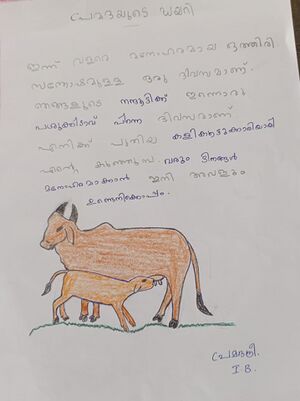 പ്രമദയുടെ ഡയറി
ഇന്ന് വളരെ മനോഹരമായ ഒത്തിരി
സന്തോഷമുള്ള ഒരു ദിവസമാണ്.
ഞങ്ങളുടെ നന്ദൂട്ടിക്ക് ഇന്നൊരു
പശുക്കിടാവ് പിറന്ന ദിവസമാണ്
എനിക്ക് പുതിയ കളിക്കൂട്ടുകാരിയായി
എന്റെ കുഞ്ഞുസ. വരും ദിനങ്ങൾ
മനോഹരമാക്കാൻ ഇനി അവളും
ഉണ്ടെനിക്കൊപ്പം.
I. B.